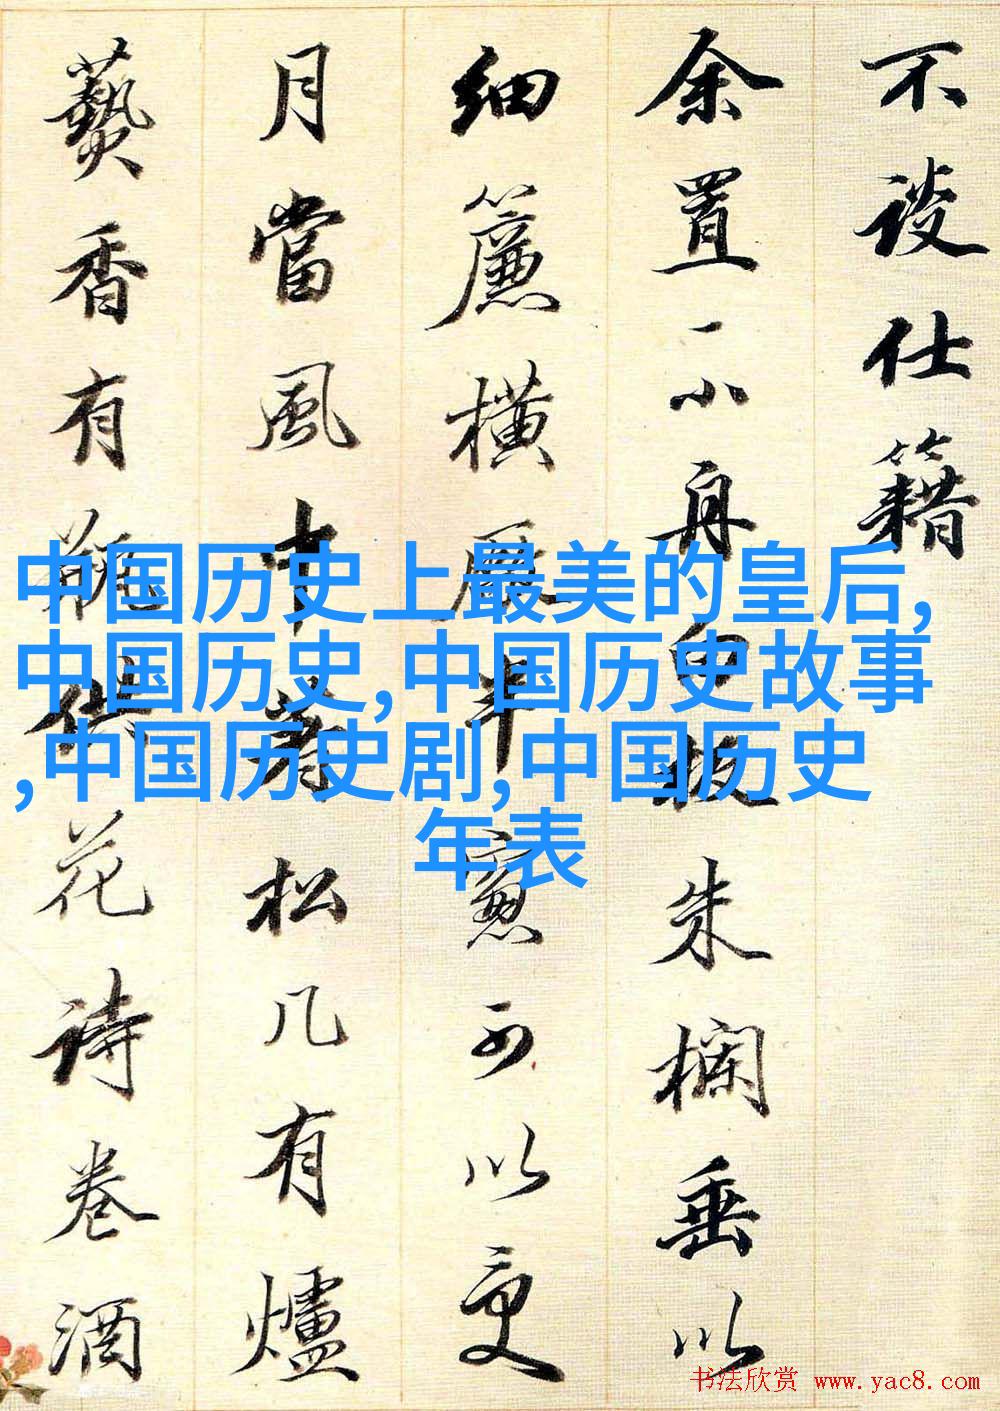 不談仕籍
余置一小舟白板朱欄垂以
細簾橫半窻可以更
月當風中着松几有爐
爇香有瓶供花詩卷酒
中国历史上最美的皇后,
中国历史,中国历史故事
,中国历史剧,中国历史
年表
书法欣赏 www.yac8.com